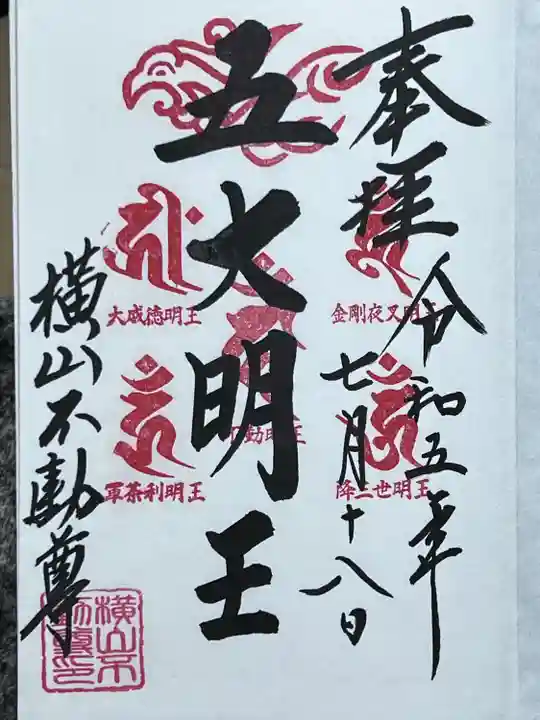 奉拝
令和五年
七月十八日
五大明王
横山不動尊
金剛夜叉明王
大威徳明王
不動明王
降三世明王
軍荼利明王